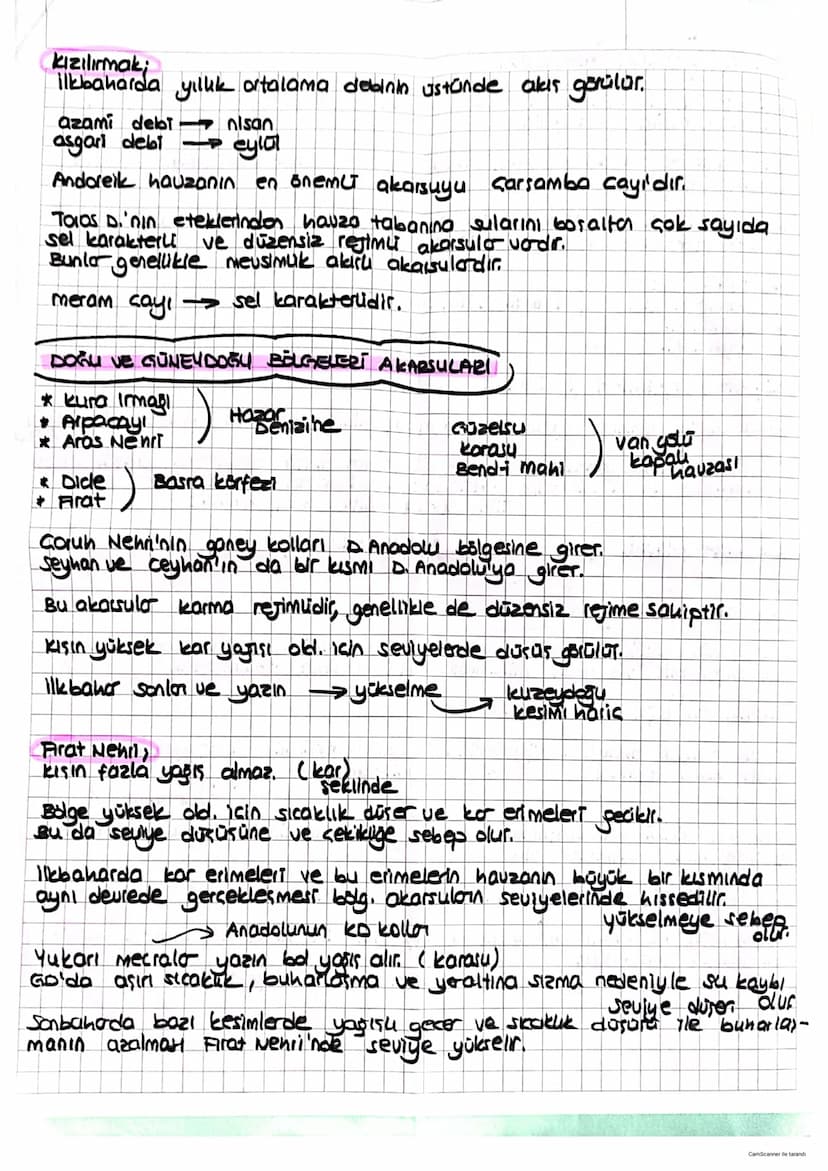 Kızılırmak;
İlkbaharda yıllık ortalama debinin üstünde akış görülür.
azami debi → nisan
asgari debi → eylül
Andoreik havzanın en önemli akarsuyu Çarşamba çayı'dır.
Toros D.'nın eteklerinden havza tabanına sularını boşaltan çok sayıda
sel karakterli ve düzensiz rejimli akarsular vardır.
Bunlar genellikle mevsimlik akışlı akarsulardır.
meram çayı → sel karakterlidir.
DOĞU VE GÜNEYDOĞU BÖLGELERİ AKARSULARI
* Kura Irmağı
* Arpaçayı
* Aras Nehri
Hazar Denizi'ne
Güzelsu
Karasu
Bend-i Mahi
Van gölü kapalı havzası
* Dicle
* Fırat
Basra körfezi
Çoruh Nehri'nin güney kolları D.Anadolu bölgesine girer.
Seyhan ve Ceyhan'ın da bir kısmı D. Anadolu'ya girer.
Bu akarsular karma rejimlidir, genellikle de düzensiz rejime sahiptir.
Kışın yüksek kar yağışı old. için seviyelerde düşüş görülür.
İlkbahar sonları ve yazın → yükselme → kuzeydoğu
kesimi hariç
Fırat Nehri;
Kışın fazla yağış almaz. (kar)
şeklinde
Bölge yüksek old. için sıcaklık düşer ve kar erimeleri gecikir.
Bu da seviye düşüşüne ve çekikliğe sebep olur.
İlkbaharda kar erimeleri ve bu erimelerin havzanın büyük bir kısmında
aynı devrede gerçekleşmesi bölg. akarsuların seviyelerinde hissedilir.
yükselmeye sebep olur.
→ Anadolunun KD kolları
Yukarı mecralar yazın bol yağış alır. (karasu)
GD'da aşırı sıcaklık, buharlaşma ve yeraltına sızma nedeniyle su kaybı
olur
seviye düşer.
Sonbaharda bazı kesimlerde yağışlı geçer ve sıcaklık düşüşü ile buharlaş-
manın azalması Fırat Nehri'nde seviye yükselir.
CamScanner ile tarandı